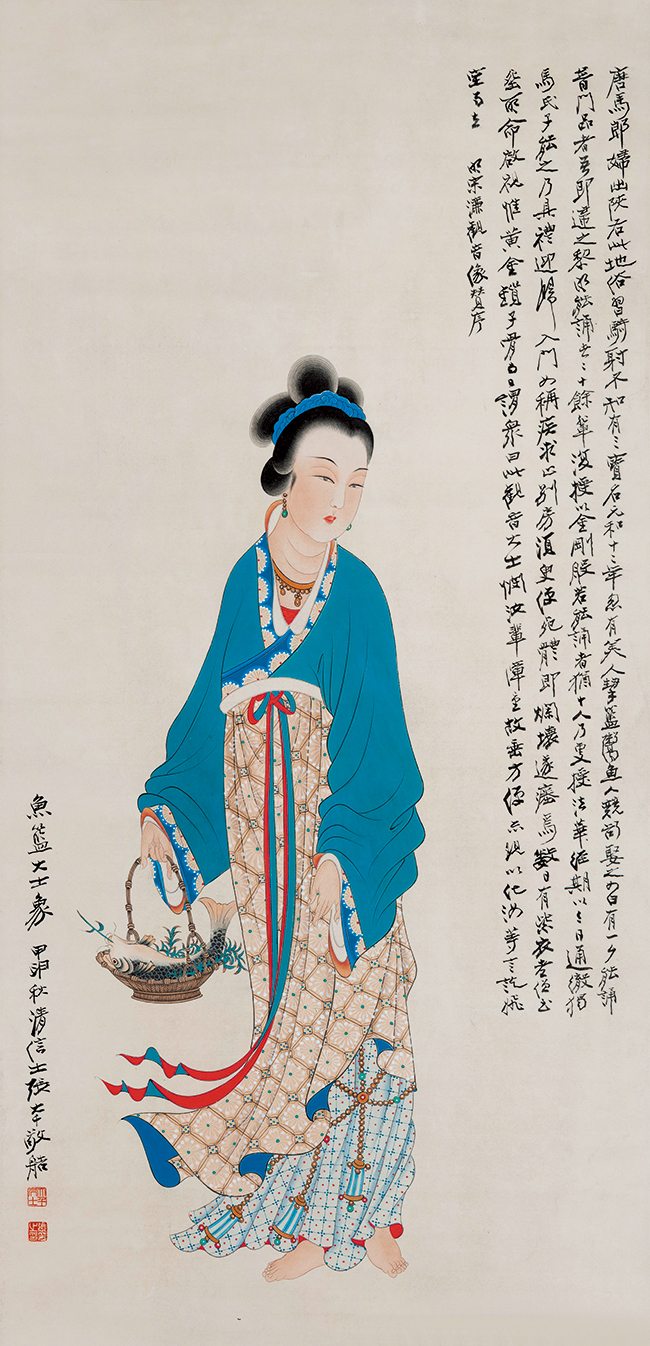 唐馬郎婦出陝右此地俗習騎射不知有三寶名元和十二年忽有美人挈籃鬻魚人競欲娶之女曰有一夕能誦
普門品者吾即適之黎明能誦者二十餘輩復授以金剛般若能誦者猶十人乃更授法華經期以三日通徹獨
馬氏子能之乃具禮迎歸入門女稱疾求止別房須臾便死體即爛壞遂瘞焉數日有紫衣老僧至
瘞所命啟視惟黃金鎖子骨謂眾曰此觀音大士憫汝輩障重故垂方便示現以化汝等言訖飛
空而去 明宋濂觀音像贊序
魚籃大士象 甲申秋清信士張大千敬造